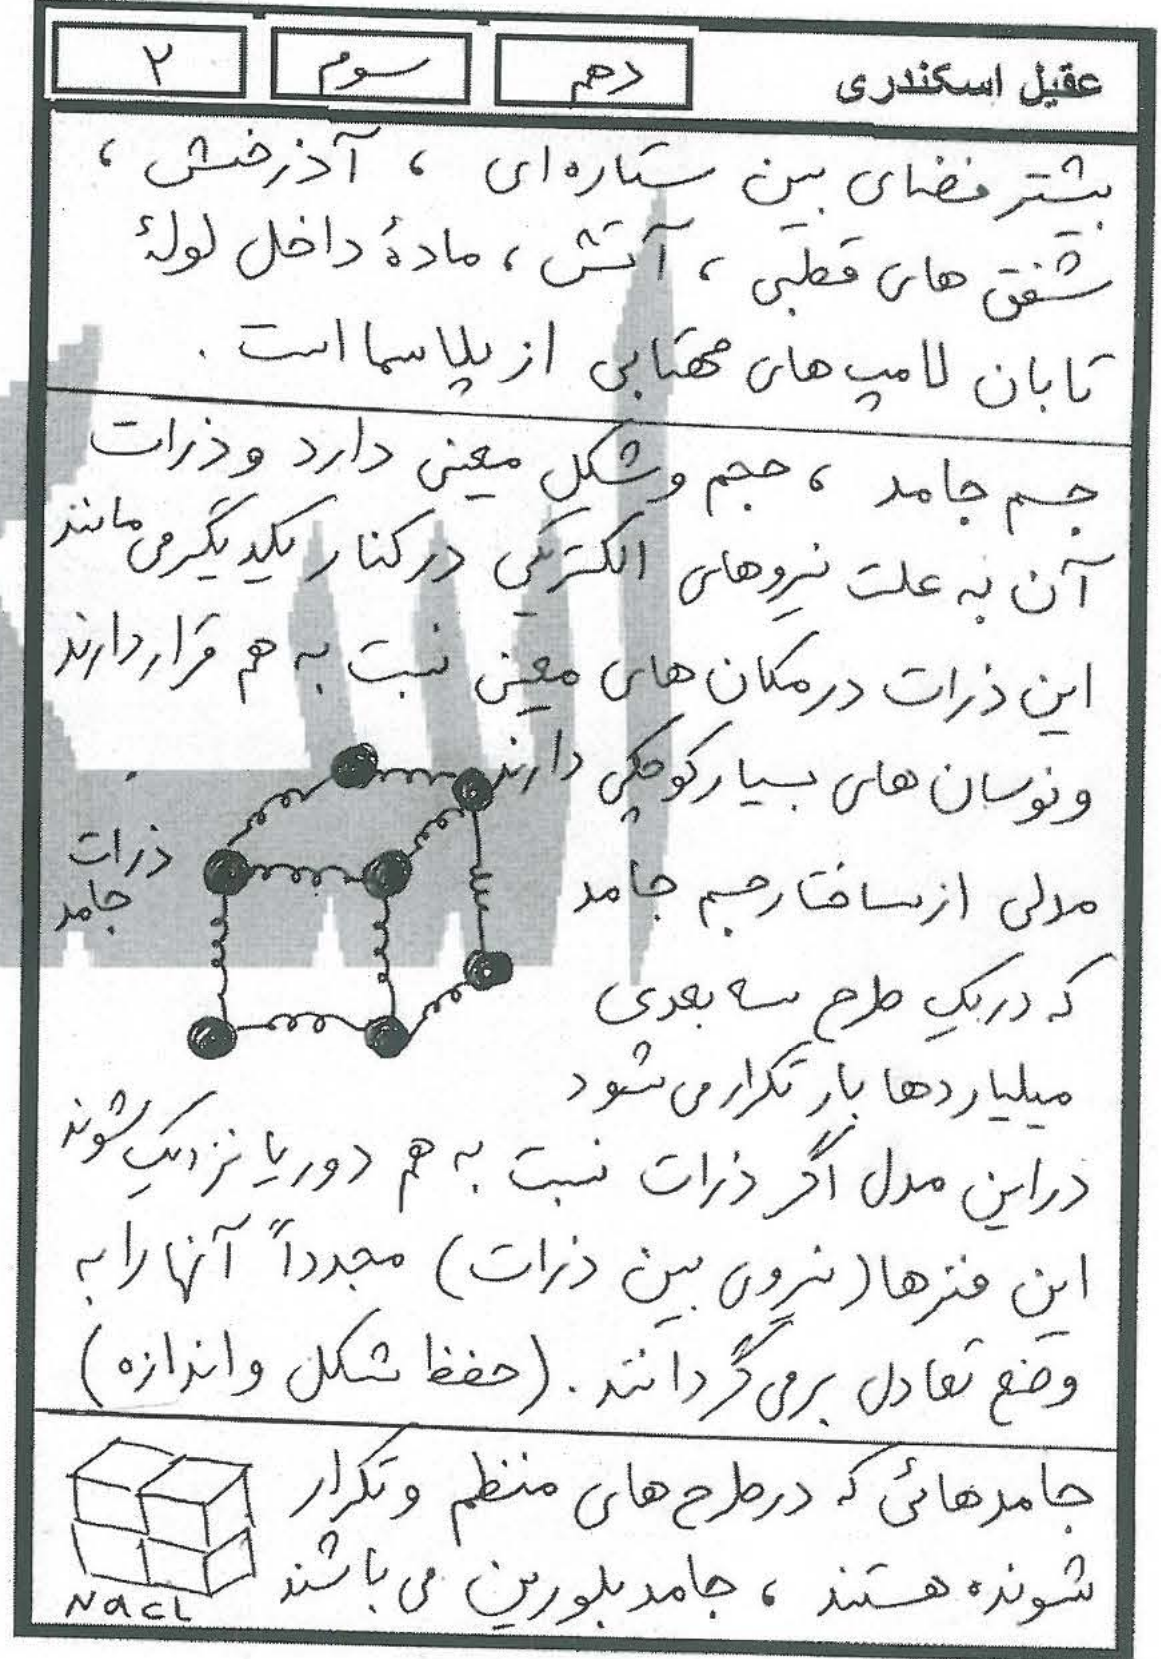 عقیل اسکندری
دهم
سوم
۲
بیشتر فضای بین ستاره ای ، آذرخش ،
شفق های قطبی ، آتش ، مادهٔ داخل لولهٔ
تابان لامپ های مهتابی از پلاسما است .
جسم جامد ، حجم و شکل معینی دارد و ذرات
آن به علت نیروهای الکتریکی در کنار یکدیگر می مانند
این ذرات در مکان های معینی نسبت به هم قرار دارند
و نوسان های بسیار کوچکی دارند
ذرات
جامد
مدلی از ساختار جسم جامد
که در یک طرح سه بعدی
میلیاردها بار تکرار می شود
در این مدل اگر ذرات نسبت به هم دور یا نزدیک شوند
این فنرها (نیروی بین ذرات) مجدداً آنها را به
وضع تعادل برمی گردانند . (حفظ شکل و اندازه)
جامدهائی که در طرح های منظم و تکرار
شونده هستند ، جامد بلورین می باشند
NaCL